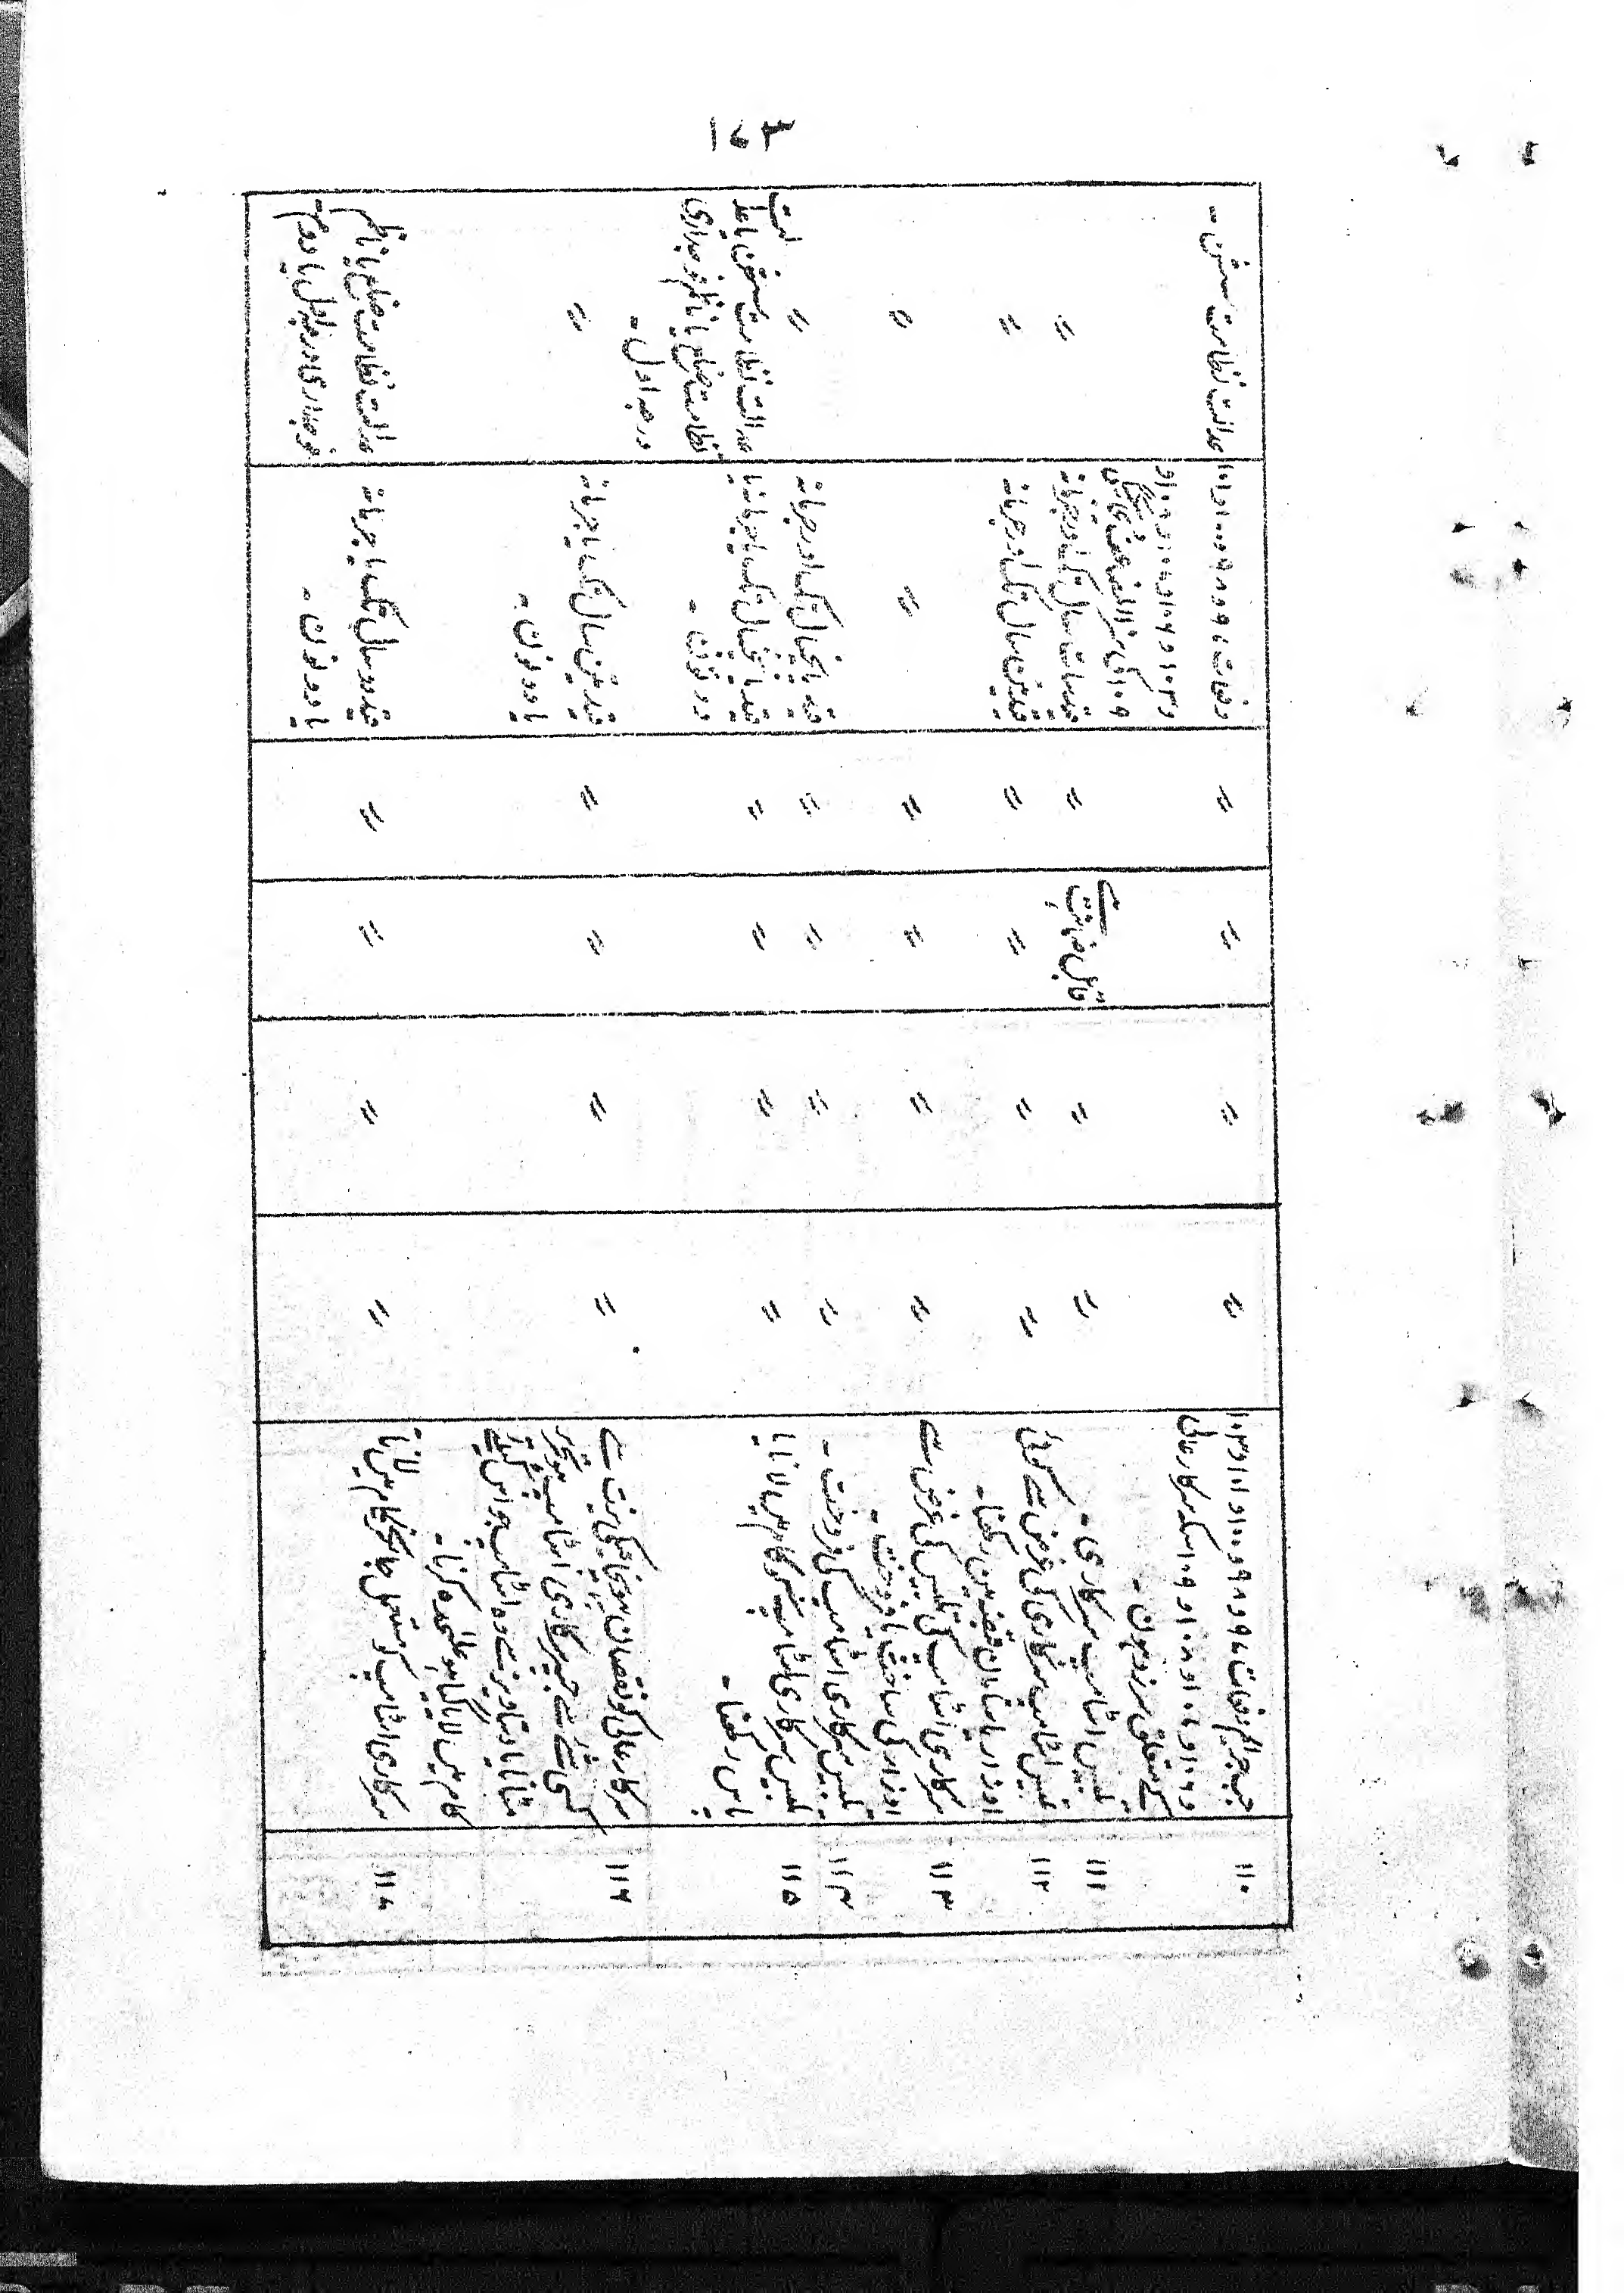 ۱۷۳
۱۱۰
جب جرائم دفعات ۹۷ و ۹۸ و ۹۹ و ۱۰۰ و ۱۰۱ و ۱۰۳
و ۱۰۶ و ۱۰۷ و ۱۰۸ و ۱۰۹ سکہ سرکار عالی
کے متعلق سرزد ہون ۔
〃
〃
〃
〃
دفعات ۹۷ و ۹۸ و ۹۹ و ۱۰۰ و ۱۰۱
و ۱۰۳ و ۱۰۶ و ۱۰۷ و ۱۰۸ و
۱۰۹ کی سزا
عدالت نظامت سشن ۔
۱۱۱
تلبیس اسٹامپ سرکاری ۔
〃
〃
قابل ضمانت ہے
〃
قید سات سال تک اور جرمانہ
〃
۱۱۲
تلبیس اسٹامپ سرکاری کی غرض سے کوئی
اوزار یا سامان قبضہ مین رکھنا ۔
〃
〃
〃
〃
قید تین سال تک اور جرمانہ
〃
۱۱۳
سرکاری اسٹامپ کی تلبیس کی غرض سے
اوزار کی ساخت یا فروخت ۔
〃
〃
〃
〃
〃
〃
۱۱۴
تلبیس سرکاری اسٹامپ کی فروخت ۔
〃
〃
〃
〃
قید پانچ سال تک اور جرمانہ
〃
۱۱۵
تلبیس سرکاری اسٹامپ کام مین لانا یا
پاس رکھنا ۔
〃
〃
〃
〃
قید پانچ سال تک یا جرمانہ یا
دونون ۔
عدالت نظامت سشن یا عدالت
نظامت ضلع یا ناظم فوجداری
درجہ اول ۔
۱۱۶
سرکار عالی کو نقصان پہونچانیکی نیت سے
کسی شے سے جسپر سرکاری اسٹامپ ہو تحریر
مٹانا یا دستاویز سے وہ اسٹامپ جو اس کیلئے
کام مین لایا گیا ہو علیحدہ کرنا ۔
〃
〃
〃
〃
قید تین سال تک یا جرمانہ
یا دونون ۔
〃
۱۱۷
سرکاری اسٹامپ کو مستعمل جانکر کام مین لانا
〃
〃
〃
〃
قید دو سال تک یا جرمانہ
یا دونون ۔
عدالت نظامت ضلع یا ناظم
فوجداری درجہ اول یا دوم ۔